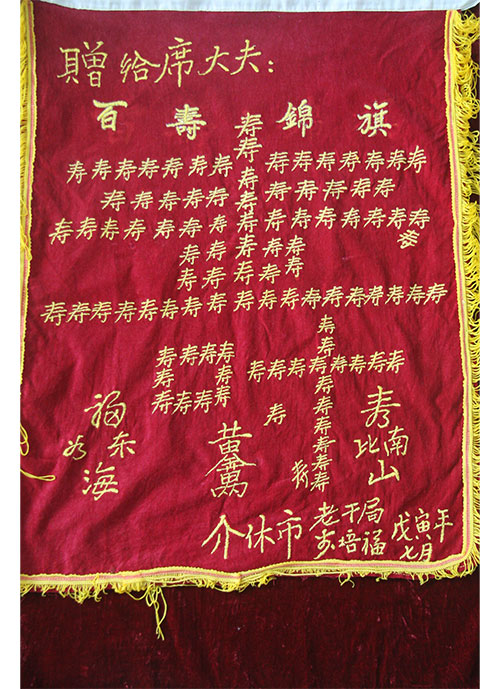 贈给席大夫：
百壽錦旗
寿
寿
寿寿寿寿寿寿寿寿寿寿寿寿寿寿寿
寿寿寿寿寿寿寿寿寿寿寿
寿寿寿寿寿寿寿寿寿寿寿寿寿寿寿
寿
寿寿寿寿寿
寿寿寿寿寿
寿寿寿寿寿寿寿寿寿寿寿寿寿寿寿寿寿
寿
寿
寿寿寿寿
寿寿寿寿寿寿寿
寿寿
寿寿寿寿
寿
寿
寿
寿
寿
寿寿
福如东海
寿比南山
介休市
老干局
培福
戊寅年
七月